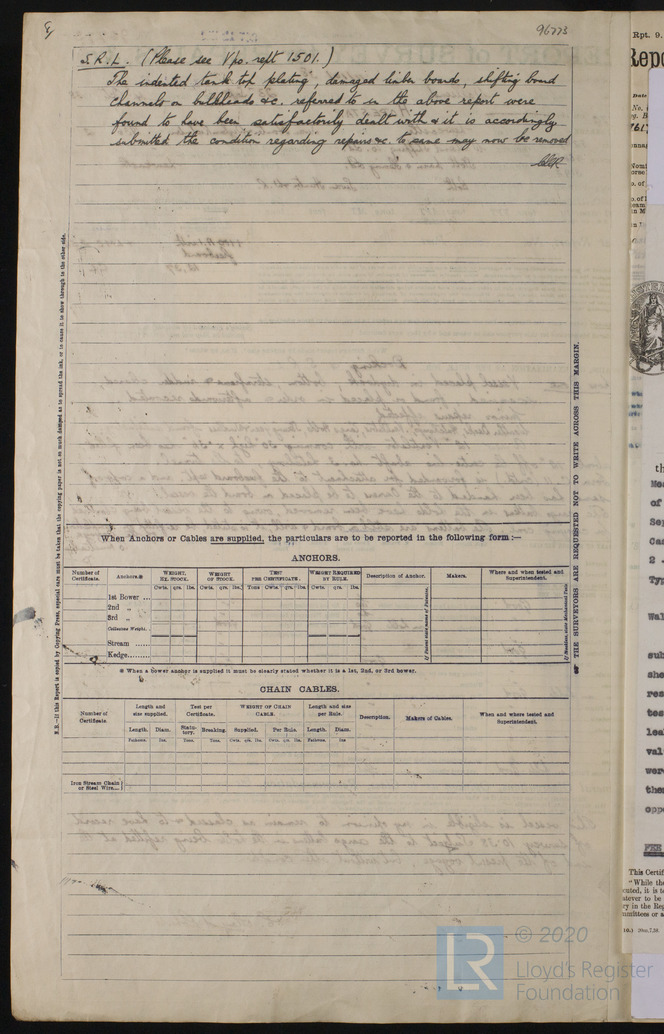 96773
S.R.L. (Please see Vpo. rept 1501.)
The indented tank top plating, damaged limber boards, shifting board
channels on bulkheads &c. referred to in the above report were
found to have been satisfactorily dealt with & it is accordingly
submitted the condition regarding repairs &c. to same may now be removed
N.B.—If this Report is copied by Copying Press, especial care must be taken that the copying paper is not so much damped as to spread the ink, or to cause it to show through to the other side.
THE SURVEYORS ARE REQUESTED NOT TO WRITE ACROSS THIS MARGIN.
When Anchors or Cables are supplied, the particulars are to be reported in the following form:—
ANCHORS.
Number of Certificate. Anchors.※ WEIGHT, EX. STOCK. WEIGHT OF STOCK. TEST PER CERTIFICATE. WEIGHT REQUIRED BY RULE. Description of Anchor. Makers. Where and when tested and Superintendent.
Cwts. qrs. lbs. Cwts. qrs. lbs. Tons Cwts. qrs. lbs. Cwts. qrs. lbs.
1st Bower ...
2nd „
3rd „
Collective Weight.
Stream ......
Kedge........
※ When a bower anchor is supplied it must be clearly stated whether it is a 1st, 2nd, or 3rd bower.
CHAIN CABLES.
Number of Certificate. Length and size supplied. Test per Certificate. WEIGHT OF CHAIN CABLE. Length and size per Rule. Description. Makers of Cables. When and where tested and Superintendent.
Length. Diam. Statutory. Breaking. Supplied. Per Rule. Length. Diam.
Fathoms. Ins. Tons. Tons. Cwts. qrs. lbs. Cwts. qrs. lbs. Fathoms. Ins.
Iron Stream Chain or Steel Wire...
Rpt. 9.
Date
th
of
Sep
2
Typ
Wal
sub
she
res
tes
lea
val
were
the
opp
FEE
This Certif
"While the
LR © 2020
Lloyd's Register
Foundation